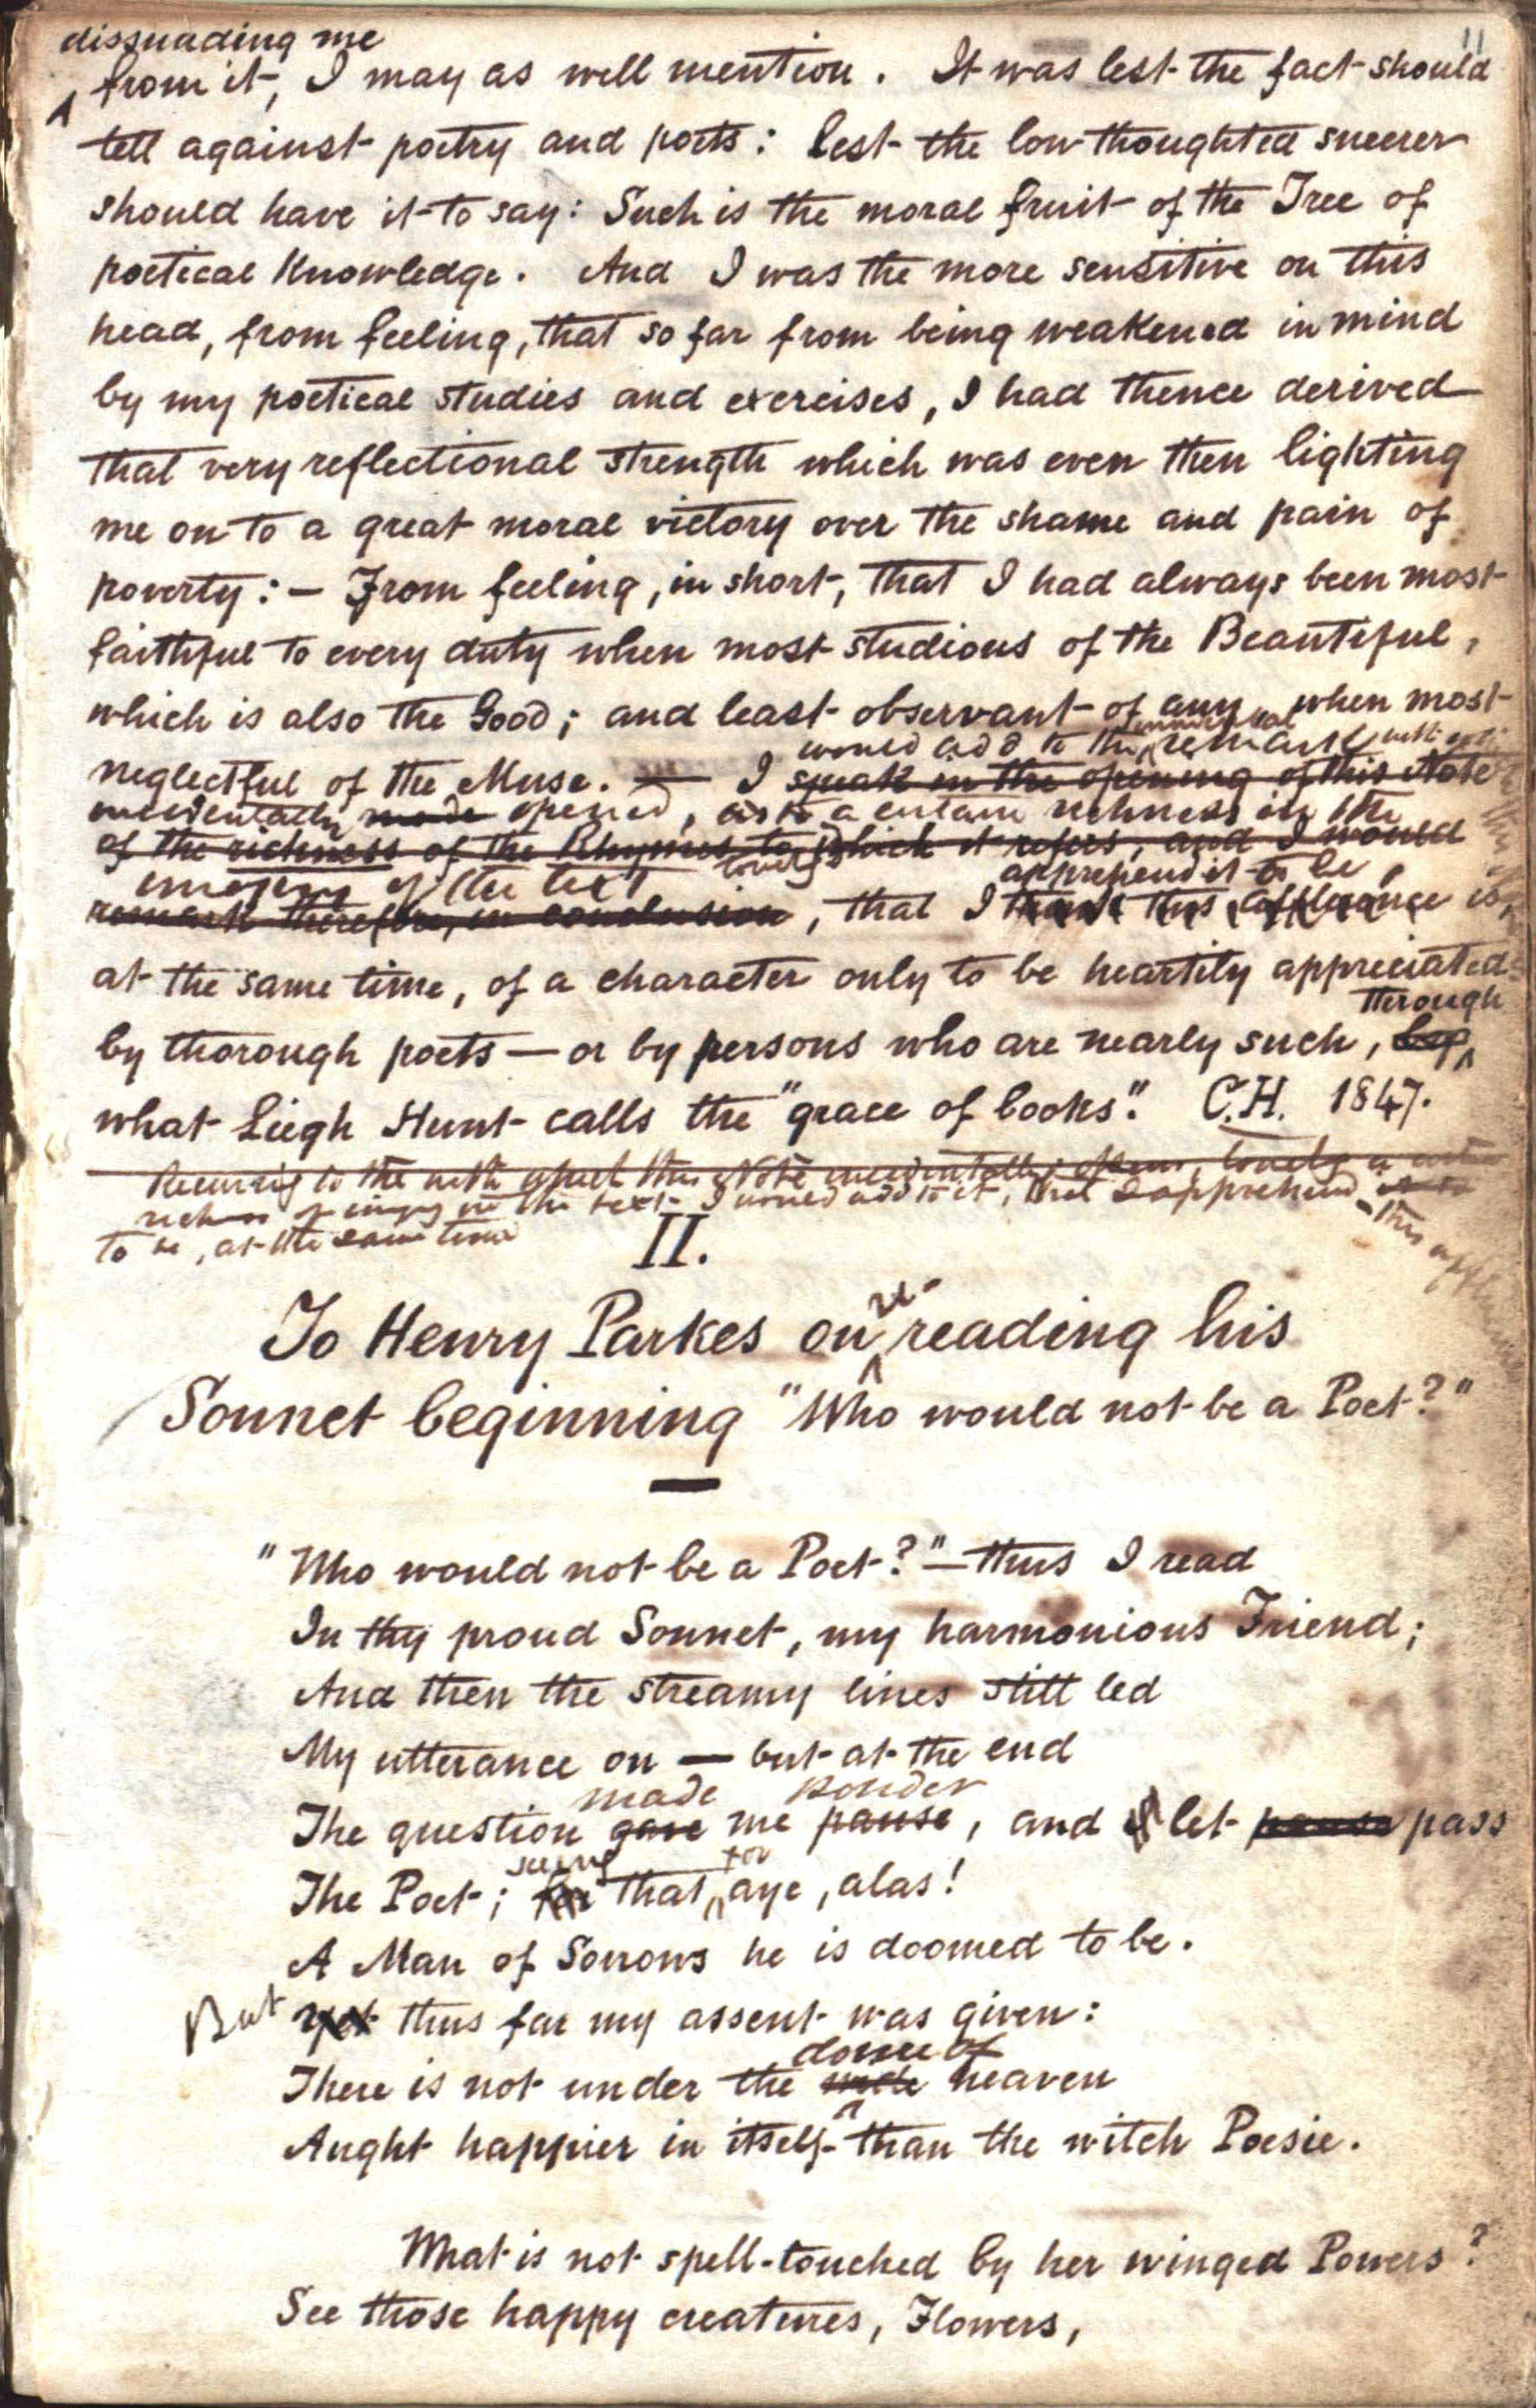 11
dissuading me
from it, I may as well mention. It was lest the fact should
tell against poetry and poets: lest the low-thoughted sneerer
should have it to say: Such is the moral fruit of the Tree of
poetical Knowledge. And I was the more sensitive on this
head, from feeling, that so far from being weakened in mind
by my poetical studies and exercises, I had thence derived
that very reflectional strength which was even then lighting
me on to a great moral victory over the shame and pain of
poverty:— From feeling, in short, that I had always been most
faithful to every duty when most studious of the Beautiful,
which is also the Good; and least observant of any when most
would add to the remark
neglectful of the Muse. — I speak in the opening of this Note
incidentally made opened, as to a certain richness in the
of the richness of the Rhymes to which it refers, and I would
imagery of the text
apprehend it to be
remark therefore, in conclusion, that I think this affluence is,
at the same time, of a character only to be heartily appreciated
through
by thorough poets — or by persons who are nearly such, by
what Leigh Hunt calls the "grace of books". C.H. 1847.
Recurring to the with which this Note incidentally opens,
richness of imagery in the text I would add to it, that I apprehend this
to be, at the same time
II.
re-
To Henry Parkes on reading his
Sonnet beginning "Who would not be a Poet?"
"Who would not be a Poet?" — thus I read
In thy proud Sonnet, my harmonious Friend;
And then the streamy lines still led
My utterance on — but at the end
made ponder
The question gave me pause, and let pause pass
seeing for
The Poet; for that aye, alas!
A Man of Sorrows he is doomed to be.
But yet thus far my assent was given:
dome of
There is not under the wide heaven
Aught happier in itself than the witch Poesie.
What is not spell-touched by her winged Powers?
See those happy creatures, Flowers,